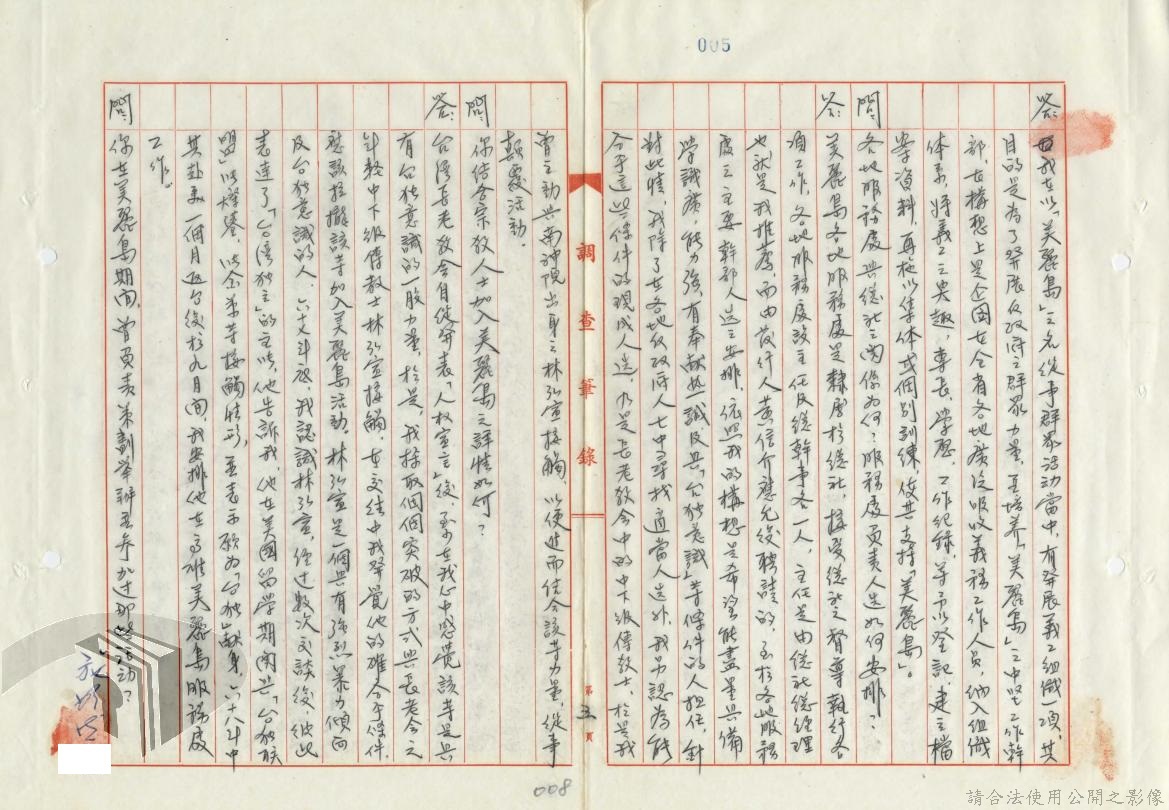 005
答：我在以「美麗島」之名從事群眾活動當中，有發展義工組織一項，其
目的是為了發展反政府之群眾力量，並培養「美麗島」之中堅工作幹
部，在構想上是企圖在全省各地廣泛吸收義務工作人員，納入組織
體系，將義工之興趣、專長、學歷、工作紀錄等予以登記，建立檔
案資料，再施以集体或個別訓練，使其支持「美麗島」。
問：各地服務處與總社之關係為何？服務處負責人選如何安排？
答：美麗島各地服務處是隸屬於總社，接受總社之督導執行各
項工作，各地服務處設主任及總幹事各一人，主任是由總社總經理
也就是我推薦，而由發行人黃信介應允後聘請的，至於各地服務
處之主要幹部人選之安排，依照我的構想是希望能盡量具備
學識廣、能力強、有奉獻熱誠及具「台獨意識」等條件的人担任，針
對此情，我除了在各地反政府人士中尋找適當人選外，我另認為能
合乎這些條件的現成人選，乃是長老教會中的中下級傳教士，於是我
調查筆錄
第五頁
曾主動與南神院出身之林弘宣接觸，以便進而結合該等力量，從事
顛覆活動。
問：你結合宗教人士加入美麗島之詳情如何？
答：台灣長老教會自從發表「人權宣言」後，至在我心中感覺該等是具
有台独意識的一股力量，於是，我採取個個突破的方式與長老会之
年輕中下級傳教士林弘宣接觸，在交往中我發覺他的確合乎條件，
應該拉攏該等加入美麗島活動。林弘宣是一個具有強烈暴力傾向
及台独意識的人，六十七年底，我認識林弘宣，經過數次交談後，彼此
表達了「台灣独立」的主張，他告訴我，他在美國留學期間與「台独联
盟」
其赴美一個月返台後於九月間，我安排他在高雄美麗島服務處
工作。
問：你在美麗島期間，曾負責策劃舉辦並參加過那些活動？
008
請合法使用公開之影像